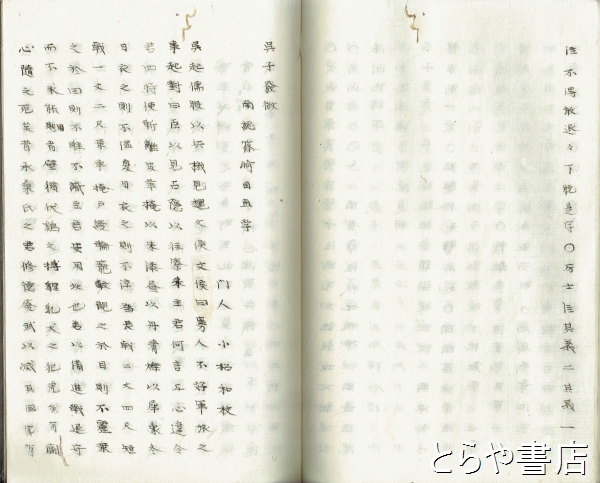 往不得散退々下総達子〇万士往其義二其義一
呉子發微
南総齋﨑田正学
門人 小栢和校
呉起儒服以兵機見魏文侯文侯曰寡人不好軍旅之
事起對曰臣以見占隱以往察來主君何言与心違今
君四時使斬離皮革掩以朱漆畫以丹青爍以犀象冬
日衣之則不溫夏日衣之則不涼為長戟二丈四尺短
戟一丈二尺革車掩戸縵輪籠轂觀之於目則不麗乗
之於田則不輕不識主君安用此也若以備進戰退守
而不求能用者譬猶伏雞之搏貍乳犬之犯虎雖有鬪
心隨之死矣昔承桑氏之君修德廢武以滅其國家有
とらや書店